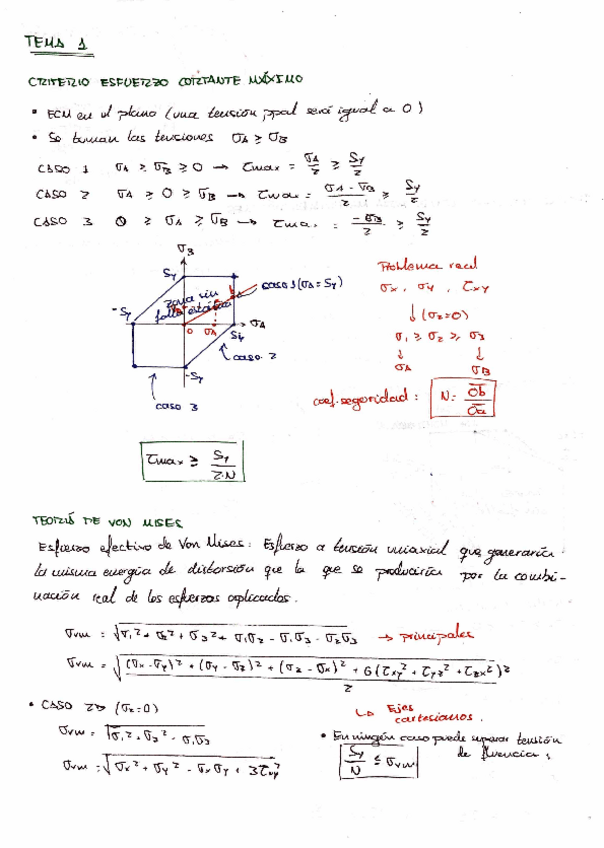 TEMA 1
CRITERIO ESFUERZO CORTANTE MÁXIMO
• ECM en el plano (una tensión ppal será igual a 0)
• Se toman las tensiones σA ≥ σB
CASO 1 σA ≥ σB ≥ 0 → τmax = σA/2 ≥ Sy/2
CASO 2 σA ≥ 0 ≥ σB → τmax = (σA - σB)/2 ≥ Sy/2
CASO 3 0 ≥ σA ≥ σB → τmax = -σB/2 ≥ Sy/2
σB
Sy
zona sin
fallo estático
b
caso 1 (σA = Sy)
-Sy
a
0
σA
Sy
σA
caso 2
-Sy
caso 3
Problema real
σx, σy, τxy
↓ (σz=0)
σ1 ≥ σ2 ≥ σ3
↓ ↓
σA σB
coef. seguridad: N = Ob/Oa
τmax ≥ Sy/2·N
TEORÍA DE VON MISES
Esfuerzo efectivo de Von Mises: Esfuerzo a tensión uniaxial que generaría
la misma energía de distorsión que la que se produciría por la combi-
nación real de los esfuerzos aplicados.
σvm = √σ1² + σ2² + σ3² + σ1σ2 - σ1σ3 - σ2σ3 → principales
σvm = √(σx - σy)² + (σy - σz)² + (σz - σx)² + 6(τxy² + τyz² + τzx²)²/2
↳ Ejes
cartesianos.
• CASO 2D (σx=0)
σvm = √σ1² + σ3² - σ1σ3
σvm = √σx² + σy² - σxσy + 3τxy²
• En ningún caso puede superar tensión
de fluencia:
Sy/N ≤ σvm